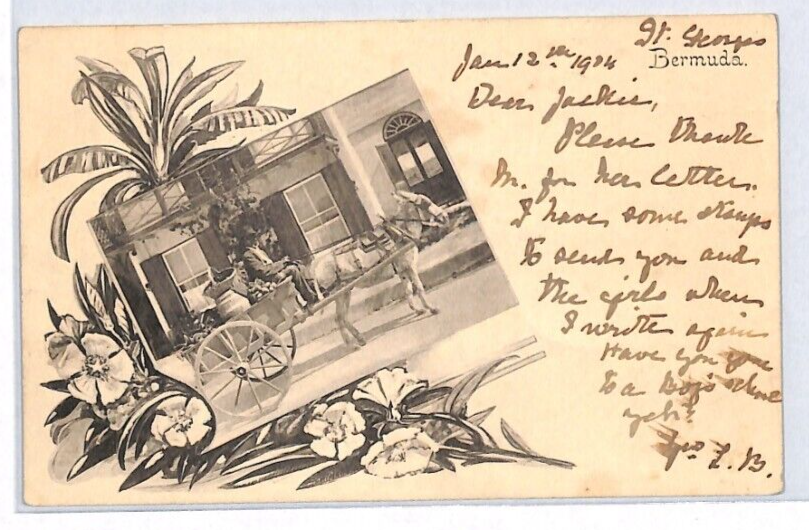 St. Georges
Bermuda.
Jan 12th 1904
Dear Jackie,
Please thank
M. for her letter.
I have some stamps
to send you and
the girls when
I write again
Have you gone
to a Boys School
yet?
L. B.